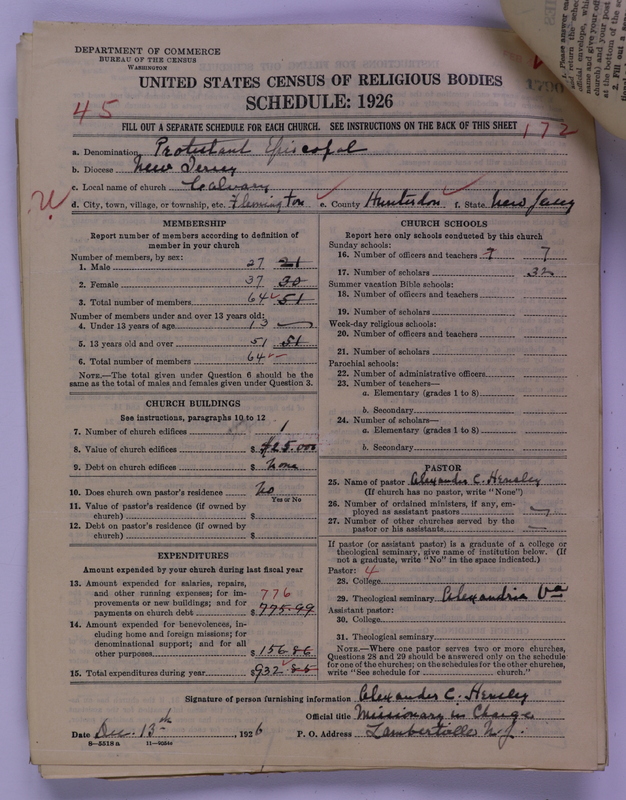 DEPARTMENT OF COMMERCE
BUREAU OF THE CENSUS
WASHINGTON
UNITED STATES CENSUS OF RELIGIOUS BODIES
SCHEDULE: 1926
45
1790
FILL OUT A SEPARATE SCHEDULE FOR EACH CHURCH. SEE INSTRUCTIONS ON THE BACK OF THIS SHEET
172
a. Denomination Protestant Episcopal
b. Diocese New Jersey
c. Local name of church Calvary
d. City, town, village, or township, etc. Flemington e. County Hunterdon f. State New Jersey
MEMBERSHIP
Report number of members according to definition of
member in your church
Number of members, by sex:
1. Male 27 21
2. Female 37 30
3. Total number of members 64 51
Number of members under and over 13 years old:
4. Under 13 years of age 13
5. 13 years old and over 51 51
6. Total number of members 64
NOTE.—The total given under Question 6 should be the
same as the total of males and females given under Question 3.
CHURCH BUILDINGS
See instructions, paragraphs 10 to 12
7. Number of church edifices 1
8. Value of church edifices $ 25.000
9. Debt on church edifices $ None
10. Does church own pastor's residence No
Yes or No
11. Value of pastor's residence (if owned by
church) $
12. Debt on pastor's residence (if owned by
church) $
EXPENDITURES
Amount expended by your church during last fiscal year
13. Amount expended for salaries, repairs,
and other running expenses; for im-
provements or new buildings; and for
payments on church debt 776 $ 775.99
14. Amount expended for benevolences, in-
cluding home and foreign missions; for
denominational support; and for all
other purposes $ 156.86
15. Total expenditures during year $ 932.85
CHURCH SCHOOLS
Report here only schools conducted by this church
Sunday schools:
16. Number of officers and teachers 7 7
17. Number of scholars 32
Summer vacation Bible schools:
18. Number of officers and teachers
19. Number of scholars
Week-day religious schools:
20. Number of officers and teachers
21. Number of scholars
Parochial schools:
22. Number of administrative officers
23. Number of teachers—
a. Elementary (grades 1 to 8)
b. Secondary
24. Number of scholars—
a. Elementary (grades 1 to 8)
b. Secondary
PASTOR
25. Name of pastor Alexander C. Hensley
(If church has no pastor, write "None")
26. Number of ordained ministers, if any, em-
ployed as assistant pastors
27. Number of other churches served by the
pastor or his assistants
If pastor (or assistant pastor) is a graduate of a college or
theological seminary, give name of institution below. (If
not a graduate, write "No" in the space indicated.)
Pastor: 4
28. College
29. Theological seminary Alexandria Va
Assistant pastor:
30. College
31. Theological seminary
NOTE.—Where one pastor serves two or more churches,
Questions 28 and 29 should be answered only on the schedule
for one of the churches; on the schedules for the other churches,
write "See schedule for church."
Signature of person furnishing information Alexander C. Hensley
Official title Missionary in Charge
Date Dec. 13th, 1926 P. O. Address Lambertville N.J.
8—5518a 11—9034